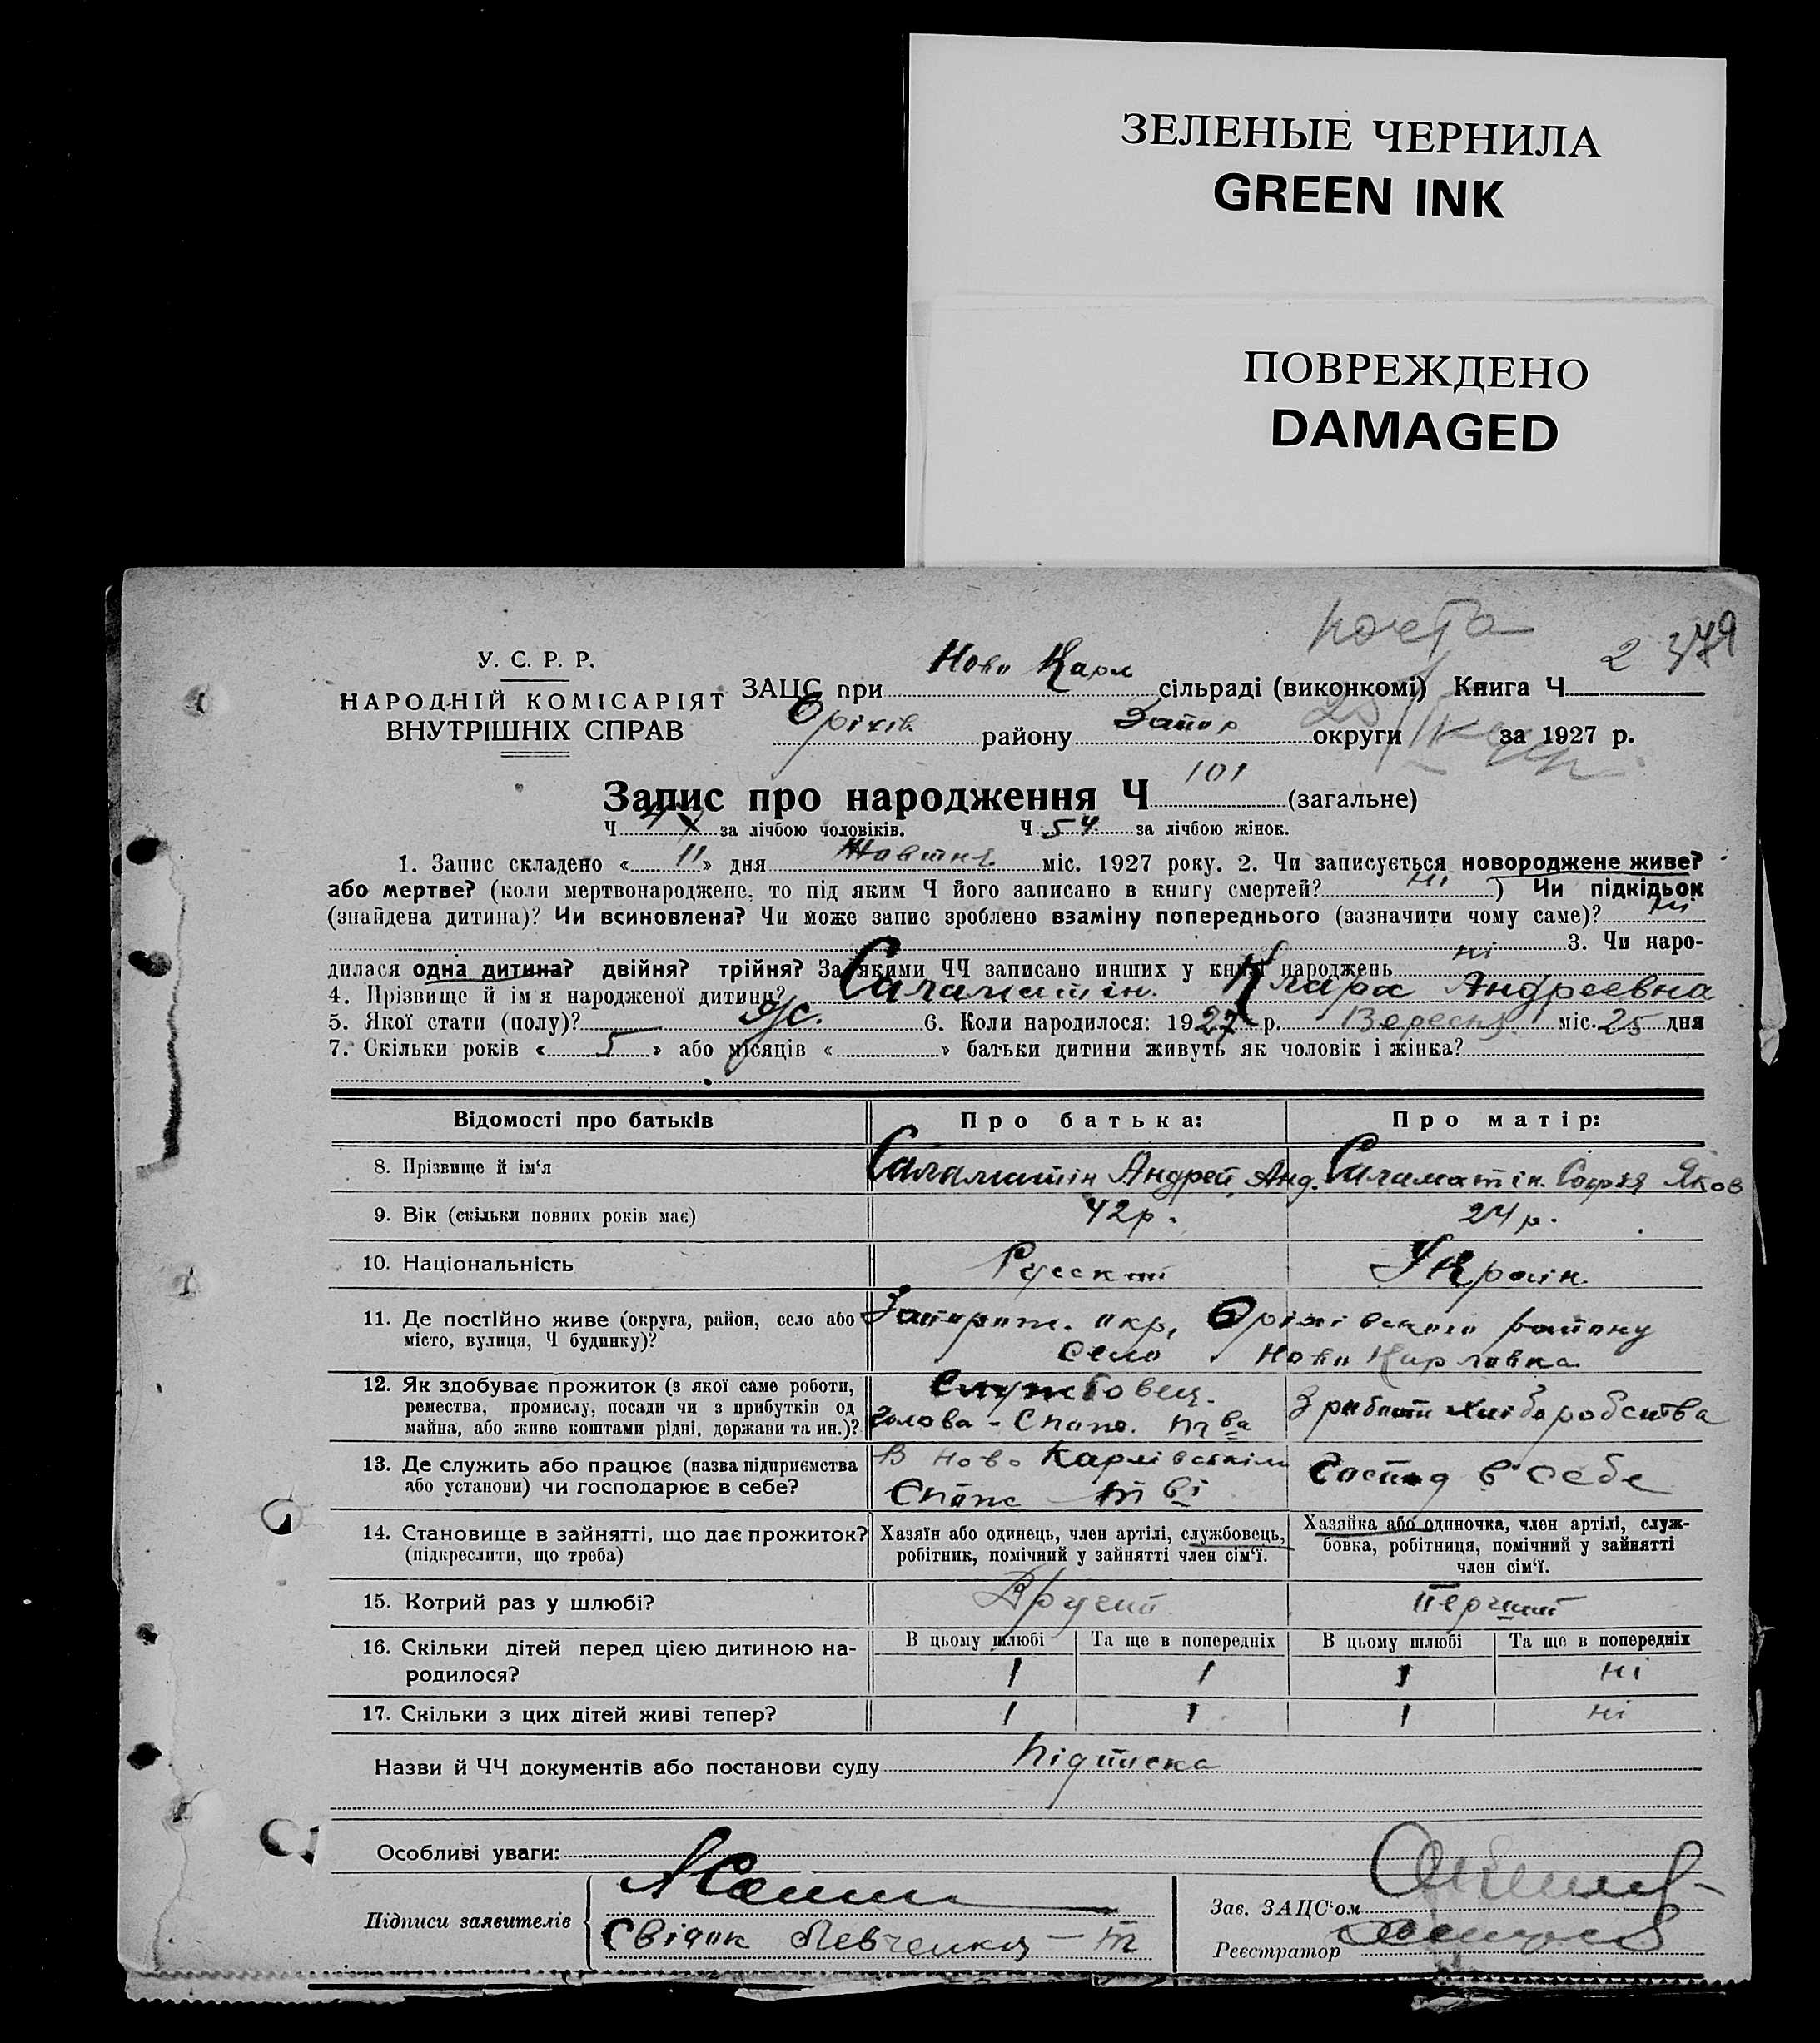 ЗЕЛЕНЫЕ ЧЕРНИЛА
GREEN INK
ПОВРЕЖДЕНО
DAMAGED
почта
2 349
У. С. Р. Р.
НАРОДНІЙ КОМІСАРІЯТ
ВНУТРІШНІХ СПРАВ
ЗАЦС при Ново Карл сільраді (виконкомі) Книга Ч
Оріхів. району Запор округи за 1927 р.
Запис про народження Ч 101 (загальне)
Ч 47 за лічбою чоловіків. Ч 54 за лічбою жінок.
1. Запис складено « 11 » дня Жовтня міс. 1927 року. 2. Чи записується новороджене живе?
або мертве? (коли мертвонароджене, то під яким Ч його записано в книгу смертей? ні ) Чи підкідьок
(знайдена дитина)? Чи всиновлена? Чи може запис зроблено взаміну попереднього (зазначити чому саме)? ні
3. Чи наро-
дилася одна дитина? двійня? трійня? За якими ЧЧ записано инших у книзі народжень ні
4. Прізвище й ім'я народженої дитини? Саламатін. Клара Андреевна
5. Якої стати (полу)? ж. 6. Коли народилося: 1927 р. Вересня міс. 25 дня
7. Скільки років « 5 » або місяців « » батьки дитини живуть як чоловік і жінка?
Відомості про батьків Про батька: Про матір:
8. Прізвище й ім'я Саламатін Андрей Анд. Саламатін. Софія Яков
9. Вік (скільки повних років має) 42р. 24р.
10. Національність Русский Україн.
11. Де постійно живе (округа, район, село або Запорож. окр, Оріхівського району
місто, вулиця, Ч будинку)? село Ново Карловка
12. Як здобуває прожиток (з якої саме роботи, Службовец.
ремества, промислу, посади чи з прибутків од Голова - Спож. т ва З работи хліборобства
майна, або живе коштами рідні, держави та ин.)?
13. Де служить або працює (назва підприємства В Ново Карлівськім
або установи) чи господарює в себе? Спож т ві Господ в себе
14. Становище в зайнятті, що дає прожиток? Хазяїн або одинець, член артілі, службовець, Хазяйка або одиночка, член артілі, служ-
(підкреслити, що треба) робітник, помічний у зайнятті член сім'ї. бовка, робітниця, помічний у зайнятті
член сім'ї.
15. Котрий раз у шлюбі? Другий Перший
16. Скільки дітей перед цією дитиною на- В цьому шлюбі Та ще в попередніх В цьому шлюбі Та ще в попередніх
родилося? 1 1 1 ні
17. Скільки з цих дітей живі тепер? 1 1 1 ні
Назви й ЧЧ документів або постанови суду Підписка
Особливі уваги:
Підписи заявителів
Свідок Левченко
Зав. ЗАЦС'ом
Реєстратор